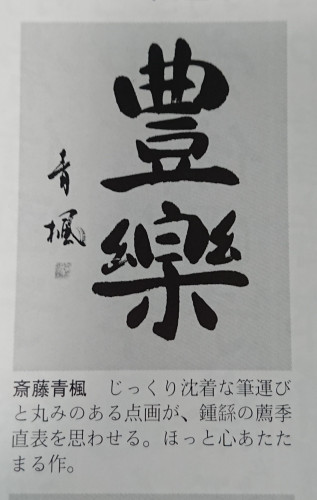 豊樂
青楓
斎藤青楓　じっくり沈着な筆運び
と丸みのある点画が、鍾繇の薦季
直表を思わせる。ほっと心あたた
まる作。